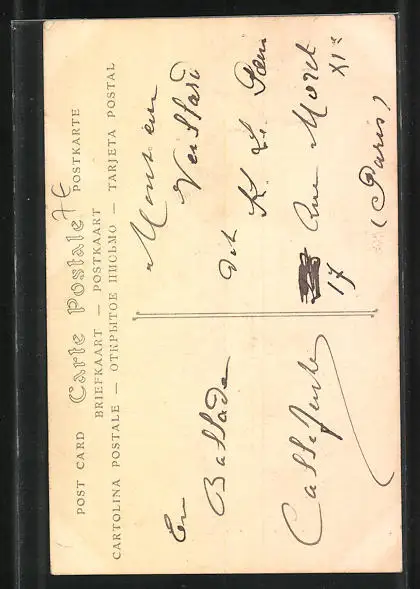 POST CARD Carte Postale POSTKARTE
7€
BRIEFKAART — POSTKAART
CARTOLINA POSTALE — ОТКРЫТОЕ ПИСЬМО — TARJETA POSTAL
En
Ballade
Monsieur
dit K. L.
17 Rue Moret
XIe
(Paris)